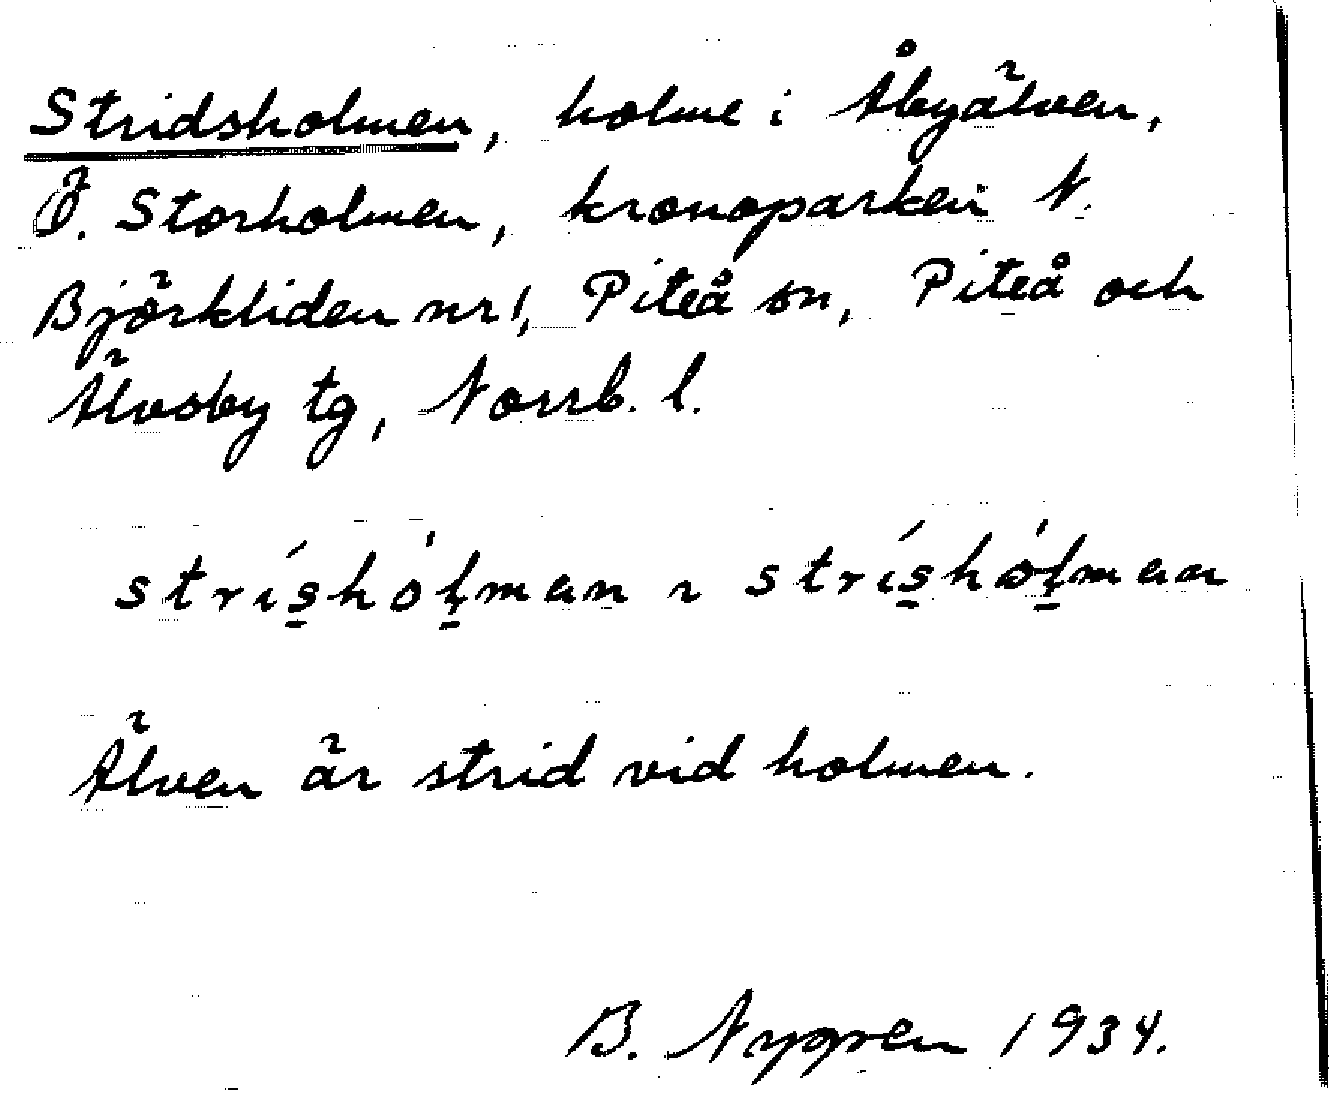 Stridsholmen, holme i Åbyälven,
Ö. Storholmen, kronoparken N.
Björkliden nr 1, Piteå sn, Piteå och
Älvsby tg, Norrb. l.
strı́s̱hó̱ḻman ~ strı́s̱hólman
Älven är strid vid holmen.
B. Nygren 1934.